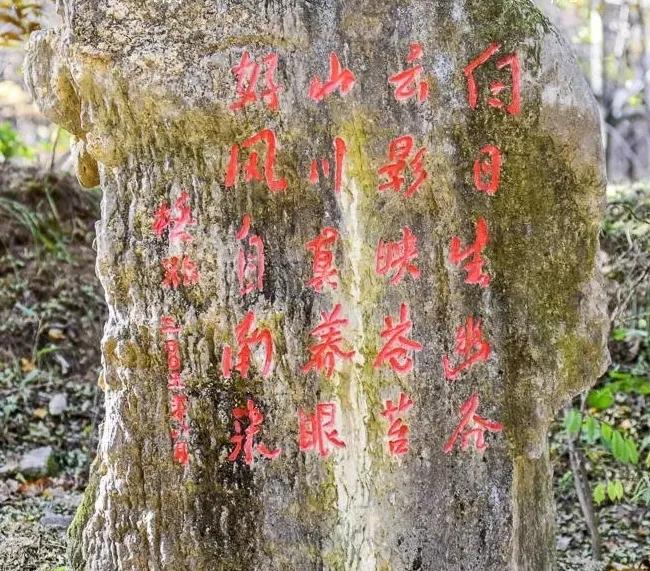 何日生幽谷
云影映苍苔
山川真养眼
好风自南来